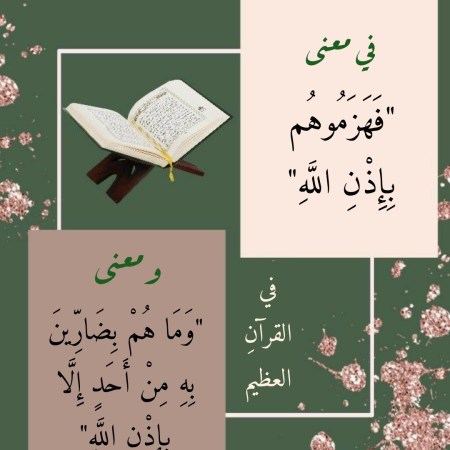 في معنى
"فَهَزَمُوهُم
بِإِذْنِ اللَّهِ"
و معنى
"وَمَا هُمْ بِضَارِّينَ
بِهِ مِنْ أَحَدٍ إِلَّا
بِإِذْنِ اللَّهِ"
في
القرآنِ
العظيم